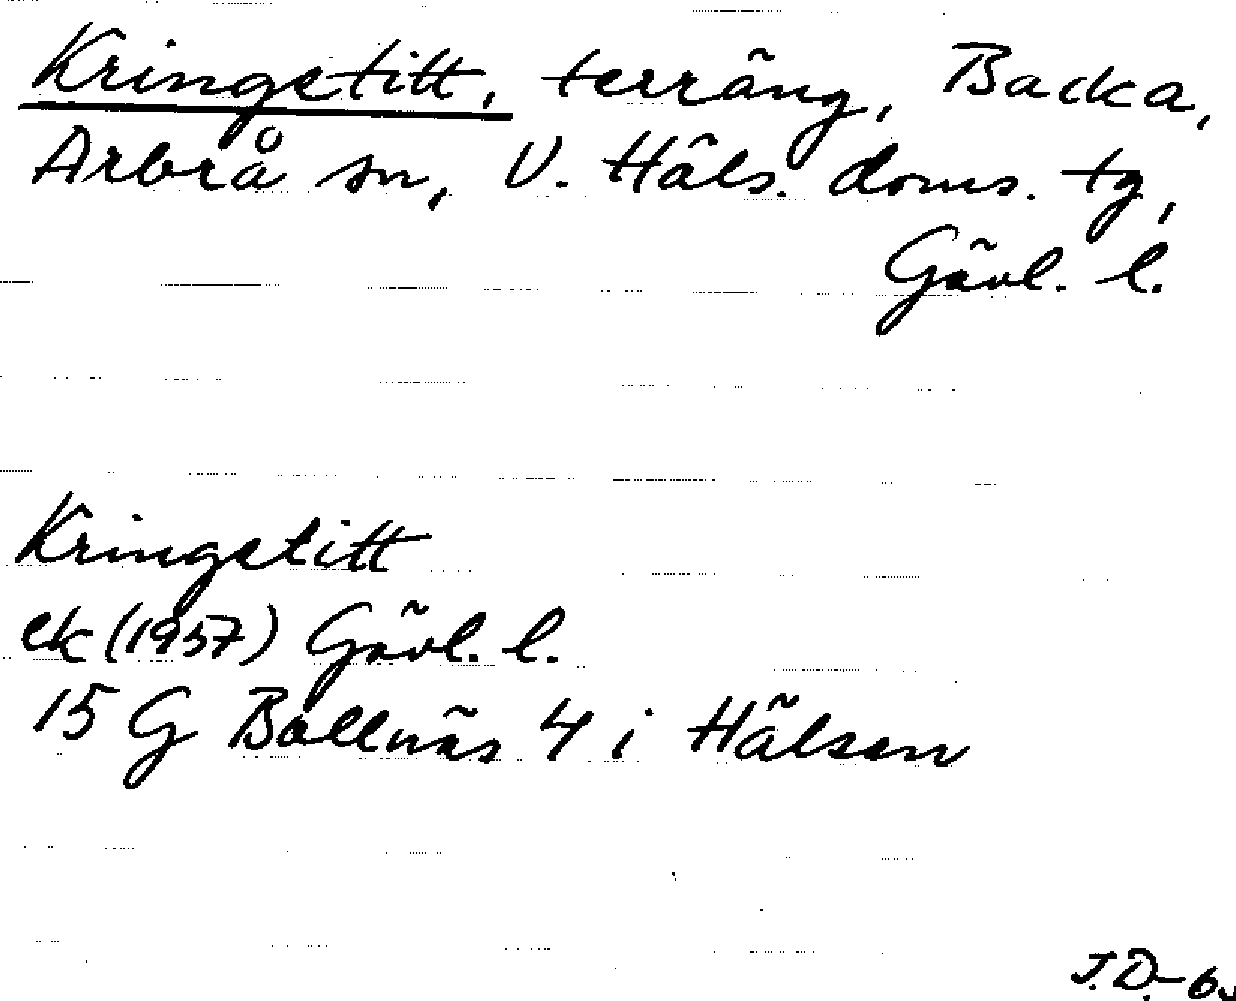 Kringstitt, terräng, Backa,
Arbrå sn, V. Häls. doms. tg,
Gävl. l.
Kringstitt
ek (1957) Gävl. l.
15 G Bollnäs 4 i Hälsen
J.D.-